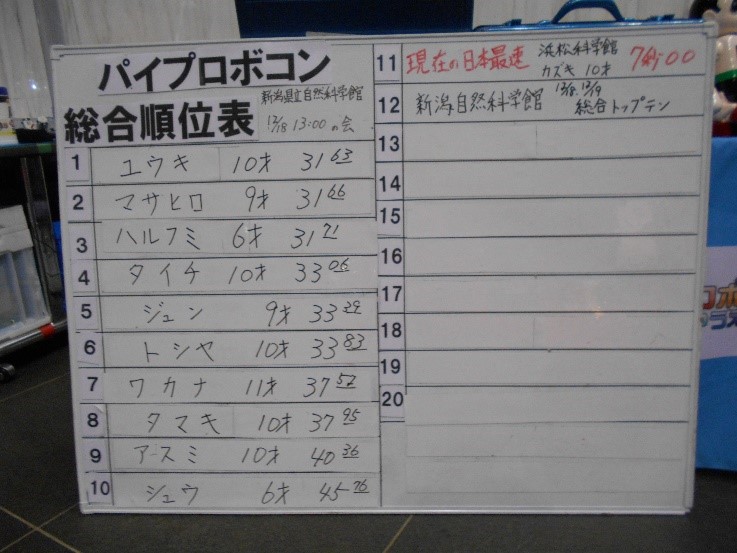 パイプロボコン
総合順位表
新潟県立自然科学館
12/18 13:00の会
1 ユウキ 10才 31 63
2 マサヒロ 9才 31 66
3 ハルフミ 6才 31 71
4 タイチ 10才 33 06
5 ジュン 9才 33 39
6 トシヤ 10才 33 83
7 ワカナ 11才 37 52
8 タマキ 10才 37 95
9 アースミ 10才 40 36
10 シュウ 6才 45 76
11 現在の日本最速 浜松科学館
カズキ 10才
12 新潟自然科学館 12/18.12/19
総合トップテン
13
14
15
16
17
18
19
20